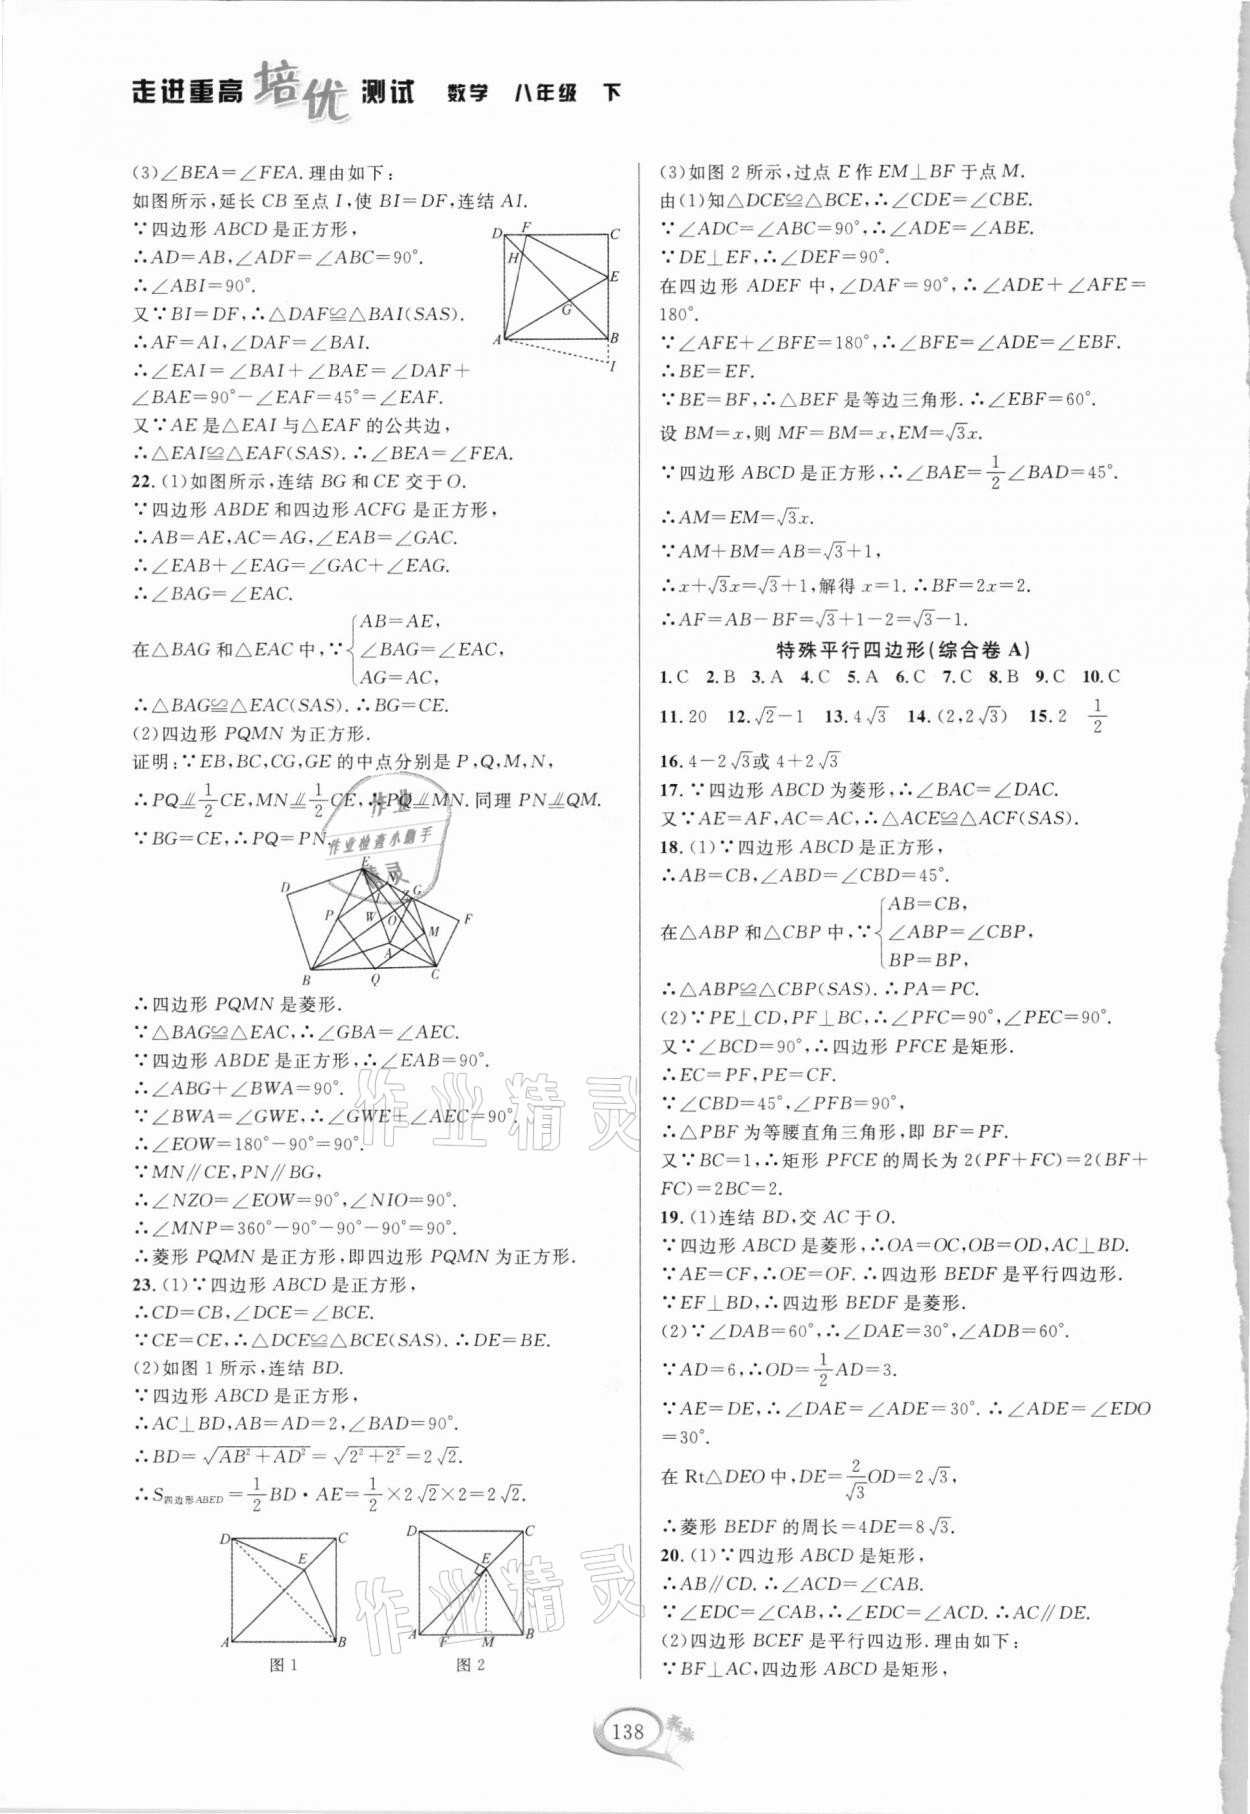 走进重高 培优 测试 数学 八年级 下
(3)∠BEA=∠FEA.理由如下:
如图所示,延长CB至点I,使BI=DF,连结AI.
∵四边形ABCD是正方形,
∴AD=AB,∠ADF=∠ABC=90°.
∴∠ABI=90°.
又∵BI=DF,∴△DAF≌△BAI(SAS).
∴AF=AI,∠DAF=∠BAI.
∴∠EAI=∠BAI+∠BAE=∠DAF+
∠BAE=90°-∠EAF=45°=∠EAF.
又∵AE是△EAI与△EAF的公共边,
∴△EAI≌△EAF(SAS).∴∠BEA=∠FEA.
D F C
H
E
G
A B
I
22.(1)如图所示,连结BG和CE交于O.
∵四边形ABDE和四边形ACFG是正方形,
∴AB=AE,AC=AG,∠EAB=∠GAC.
∴∠EAB+∠EAG=∠GAC+∠EAG.
∴∠BAG=∠EAC.
在△BAG和△EAC中,∵{AB=AE,
∠BAG=∠EAC,
AG=AC,
∴△BAG≌△EAC(SAS).∴BG=CE.
(2)四边形PQMN为正方形.
证明:∵EB,BC,CG,GE的中点分别是P,Q,M,N,
∴PQ⫽1/2CE,MN⫽1/2CE,∴PQ⫽MN.同理PN⫽QM.
∵BG=CE,∴PQ=PN.
作业
作业检查小助手
精灵
E
D N
Z G
P W O F
M
A
B Q C
∴四边形PQMN是菱形.
∵△BAG≌△EAC,∴∠GBA=∠AEC.
∵四边形ABDE是正方形,∴∠EAB=90°.
∴∠ABG+∠BWA=90°.
∵∠BWA=∠GWE,∴∠GWE+∠AEC=90°.
∴∠EOW=180°-90°=90°.
∵MN∥CE,PN∥BG,
∴∠NZO=∠EOW=90°,∠NIO=90°.
∴∠MNP=360°-90°-90°-90°=90°.
∴菱形PQMN是正方形,即四边形PQMN为正方形.
23.(1)∵四边形ABCD是正方形,
∴CD=CB,∠DCE=∠BCE.
∵CE=CE,∴△DCE≌△BCE(SAS).∴DE=BE.
(2)如图1所示,连结BD.
∵四边形ABCD是正方形,
∴AC⊥BD,AB=AD=2,∠BAD=90°.
∴BD=√(AB²+AD²)=√(2²+2²)=2√2.
∴S四边形ABED=1/2BD·AE=1/2×2√2×2=2√2.
D C
E
A B
图1
D C
E
A F M B
图2
作业精灵
作业精灵
(3)如图2所示,过点E作EM⊥BF于点M.
由(1)知△DCE≌△BCE,∴∠CDE=∠CBE.
∵∠ADC=∠ABC=90°,∴∠ADE=∠ABE.
∵DE⊥EF,∴∠DEF=90°.
在四边形ADEF中,∠DAF=90°,∴∠ADE+∠AFE=
180°.
∵∠AFE+∠BFE=180°,∴∠BFE=∠ADE=∠EBF.
∴BE=EF.
∵BE=BF,∴△BEF是等边三角形.∴∠EBF=60°.
设BM=x,则MF=BM=x,EM=√3x.
∵四边形ABCD是正方形,∴∠BAE=1/2∠BAD=45°.
∴AM=EM=√3x.
∵AM+BM=AB=√3+1,
∴x+√3x=√3+1,解得x=1.∴BF=2x=2.
∴AF=AB-BF=√3+1-2=√3-1.
特殊平行四边形(综合卷A)
1.C 2.B 3.A 4.C 5.A 6.C 7.C 8.B 9.C 10.C
11.20 12.√2-1 13.4√3 14.(2,2√3) 15.2 1/2
16.4-2√3或4+2√3
17.∵四边形ABCD为菱形,∴∠BAC=∠DAC.
又∵AE=AF,AC=AC,∴△ACE≌△ACF(SAS).
18.(1)∵四边形ABCD是正方形,
∴AB=CB,∠ABD=∠CBD=45°.
在△ABP和△CBP中,∵{AB=CB,
∠ABP=∠CBP,
BP=BP,
∴△ABP≌△CBP(SAS).∴PA=PC.
(2)∵PE⊥CD,PF⊥BC,∴∠PFC=90°,∠PEC=90°.
又∵∠BCD=90°,∴四边形PFCE是矩形.
∴EC=PF,PE=CF.
∵∠CBD=45°,∠PFB=90°,
∴△PBF为等腰直角三角形,即BF=PF.
又∵BC=1,∴矩形PFCE的周长为2(PF+FC)=2(BF+
FC)=2BC=2.
19.(1)连结BD,交AC于O.
∵四边形ABCD是菱形,∴OA=OC,OB=OD,AC⊥BD.
∵AE=CF,∴OE=OF.∴四边形BEDF是平行四边形.
∵EF⊥BD,∴四边形BEDF是菱形.
(2)∵∠DAB=60°,∴∠DAE=30°,∠ADB=60°.
∵AD=6,∴OD=1/2AD=3.
∵AE=DE,∴∠DAE=∠ADE=30°.∴∠ADE=∠EDO
=30°.
在Rt△DEO中,DE=2/√3OD=2√3,
∴菱形BEDF的周长=4DE=8√3.
20.(1)∵四边形ABCD是矩形,
∴AB∥CD.∴∠ACD=∠CAB.
∵∠EDC=∠CAB,∴∠EDC=∠ACD.∴AC∥DE.
(2)四边形BCEF是平行四边形.理由如下:
∵BF⊥AC,四边形ABCD是矩形,
138